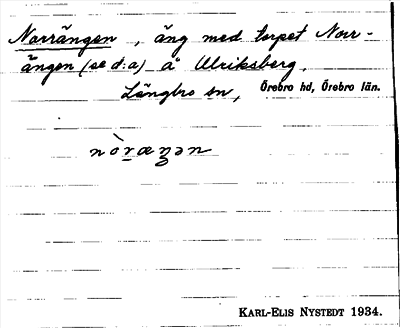 Norrängen, äng med torpet Norr-
ängen (se d.a) å Ulriksberg.
Längbro sn, Örebro hd, Örebro län.
nòræŋən
KARL-ELIS NYSTEDT 1934.